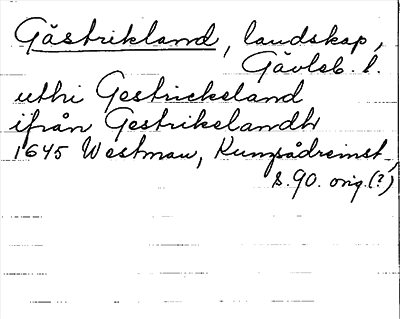 Gästrikland, landskap,
Gävleb. l.
uthi Gestrickeland
ifrån Gestrikelandh
1645 Westman,
s. 90. orig. (?)